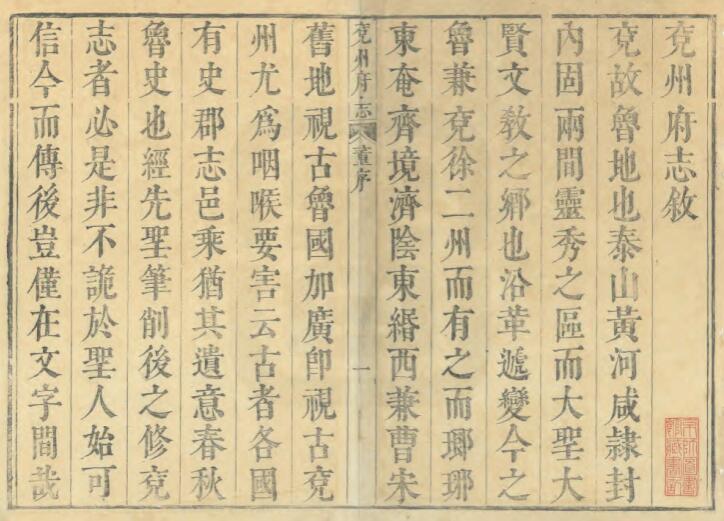 兗州府志敘
兗故魯地也泰山黃河咸隸封
內固兩間靈秀之區而大聖大
賢文敎之鄉也沿革遞變今之
魯兼兗徐二州而有之而瑯琊
東奄齊境濟陰東緡西兼曹宋
兗州府志 董序 一
舊地視古魯國加廣卽視古兗
州尤爲咽喉要害云古者各國
有史郡志邑乘猶其遺意春秋
魯史也經先聖筆削後之修兗
志者必是非不詭於聖人始可
信今而傳後豈僅在文字間哉